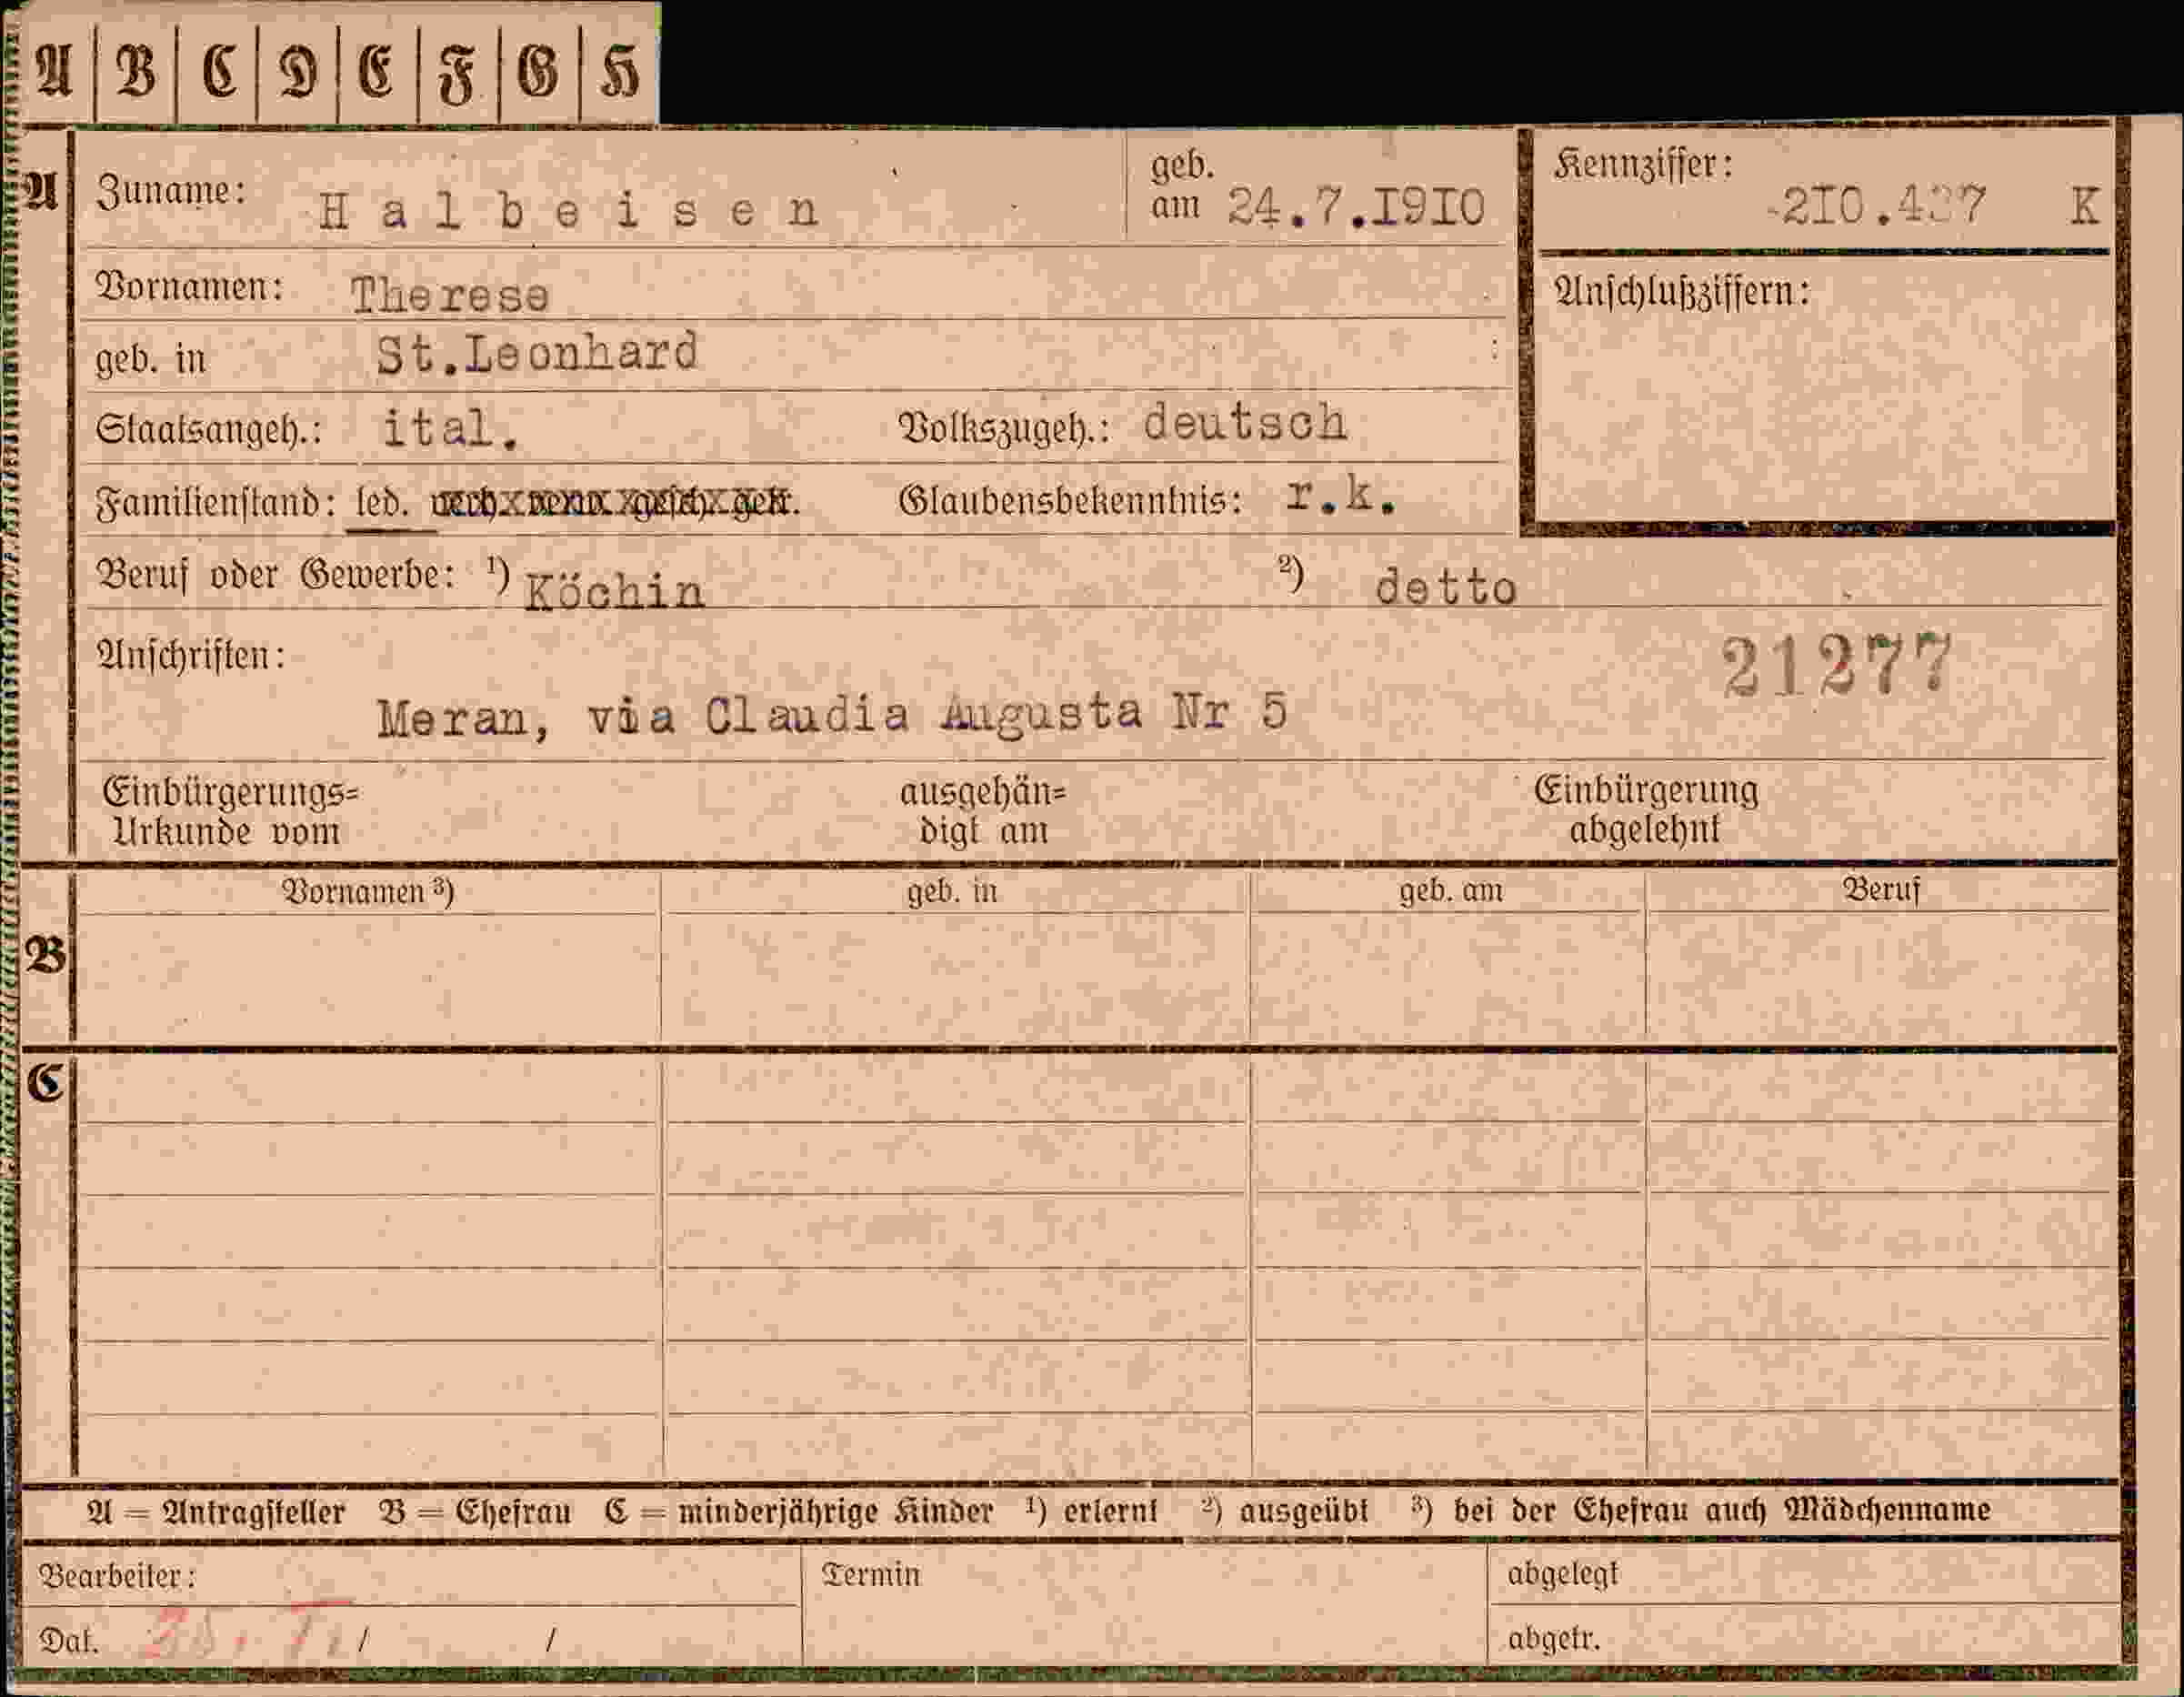 A B C D E F G H
A Zuname: Halbeisen geb. am 24.7.I9I0 Kennziffer: K
Vornamen: Therese Anschlußziffern:
geb. in St.Leonhard
Staatsangeh.: ital. Volkszugeh.: deutsch
Familienstand: led. Glaubensbekenntnis: r.k.
Beruf oder Gewerbe: ¹) Köchin ²) detto
Anschriften: 21277
Meran, via Claudia Augusta Nr 5
Einbürgerungs= ausgehän= Einbürgerung
Urkunde vom digt am abgelehnt
Vornamen ³) geb. in geb. am Beruf
B
C
A = Antragsteller B = Ehefrau C = minderjährige Kinder ¹) erlernt ²) ausgeübt ³) bei der Ehefrau auch Mädchenname
Bearbeiter: Termin abgelegt
Dat. / / abgetr.